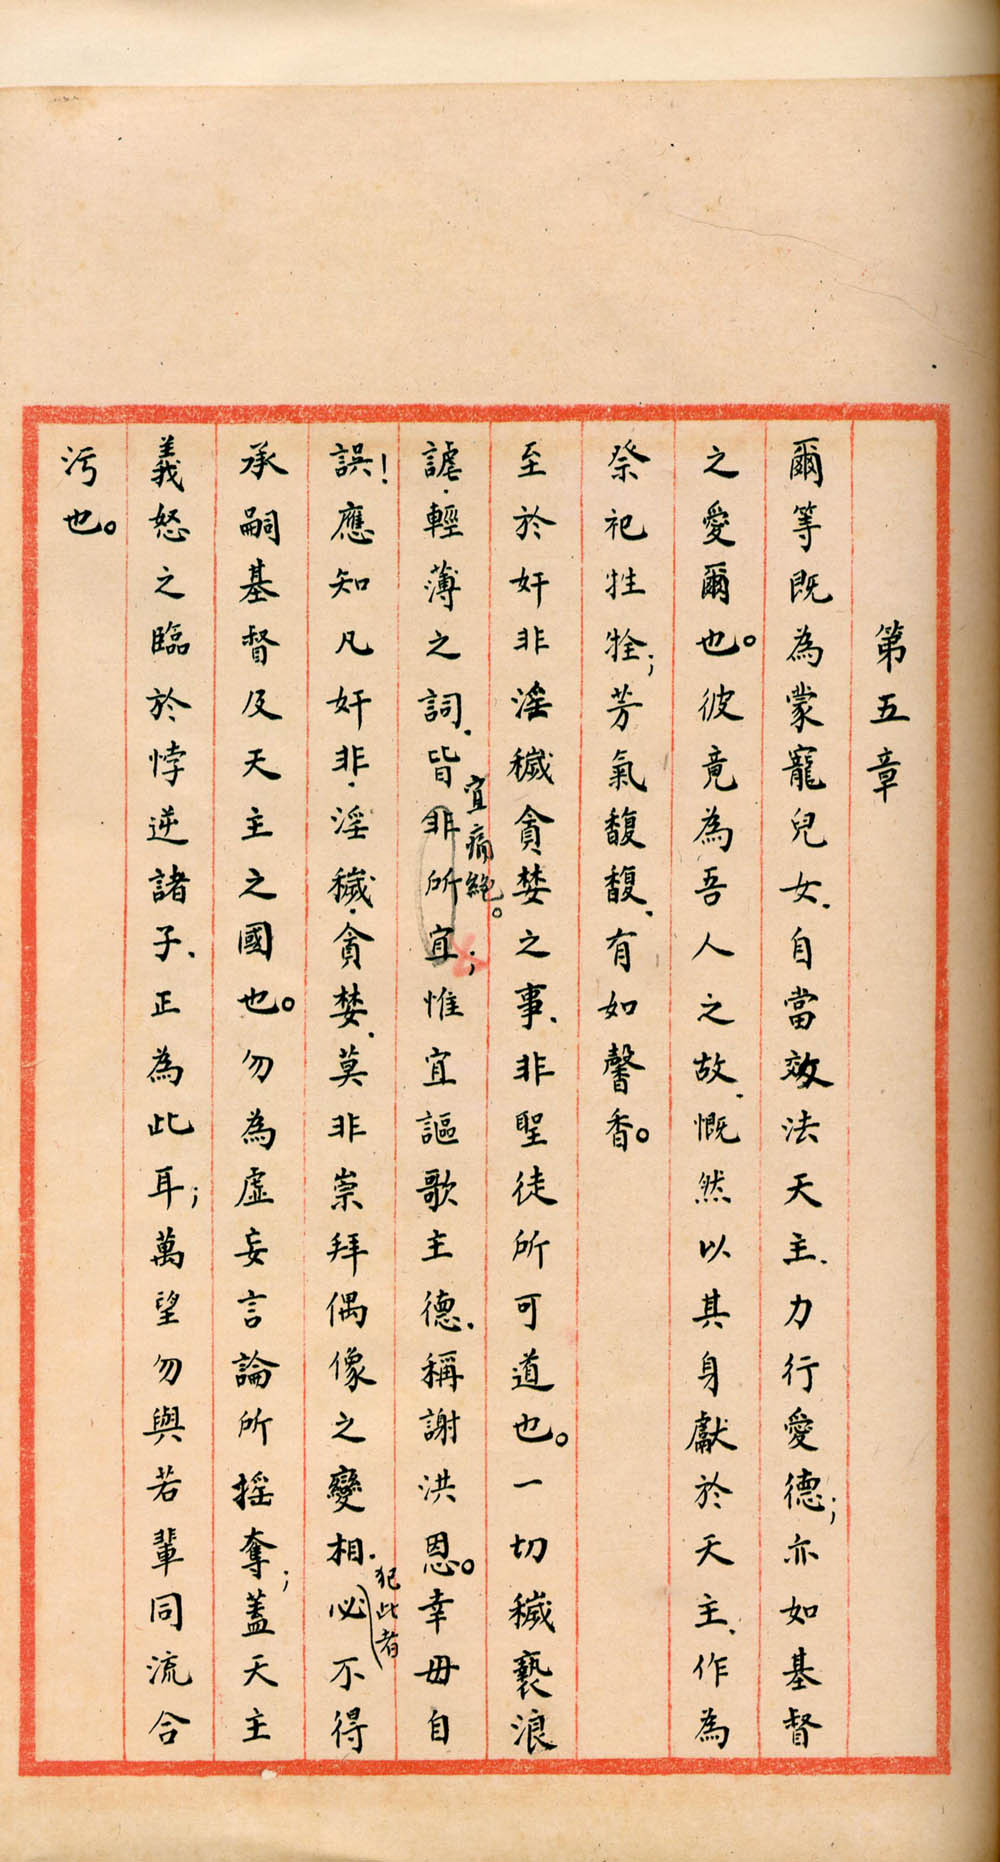 第五章
爾等既為蒙寵兒女、自當效法天主、力行愛德；亦如基督
之愛爾也。彼竟為吾人之故、慨然以其身獻於天主、作為
祭祀牲牷；芳氣馥馥、有如馨香。
至於奸非淫穢貪婪之事、非聖徒所可道也。一切穢褻浪
謔、輕薄之詞、皆非所宜；惟宜謳歌主德、稱謝洪恩。幸毋自
宜痛絕。
誤！應知凡奸非、淫穢、貪婪、莫非崇拜偶像之變相、必不得
犯此者
承嗣基督及天主之國也。勿為虛妄言論所搖奪；蓋天主
義怒之臨於悖逆諸子、正為此耳；萬望勿與若輩同流合
污也。